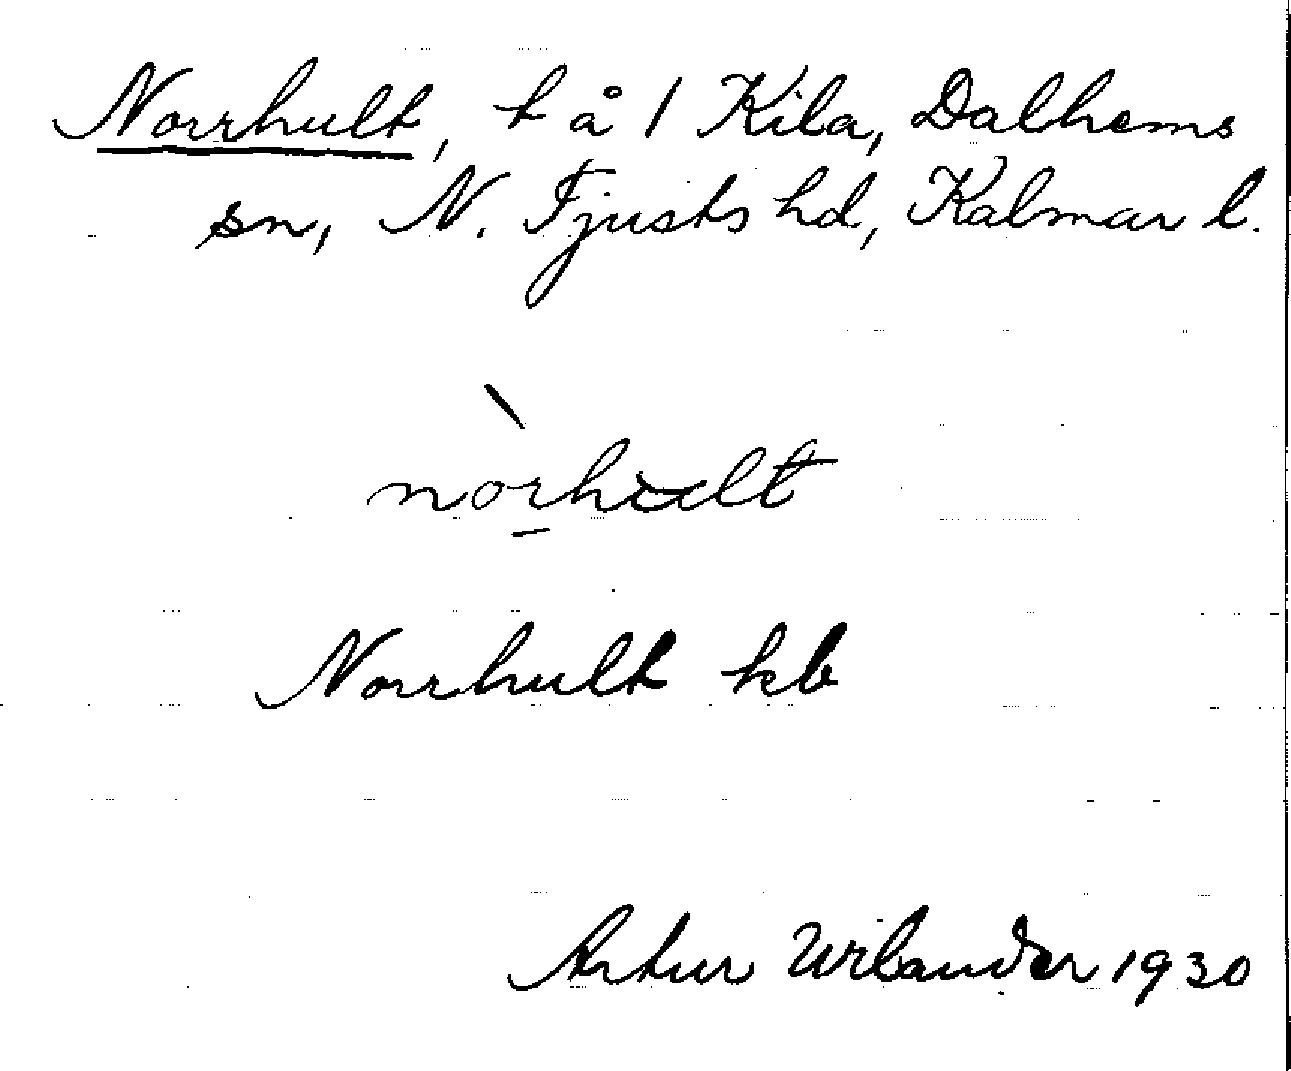 Norrhult, t å 1 Kila, Dalhems
sn, N. Tjusts hd, Kalmar l.
nòrhult
Norrhult kb
Artur Wilander 1930